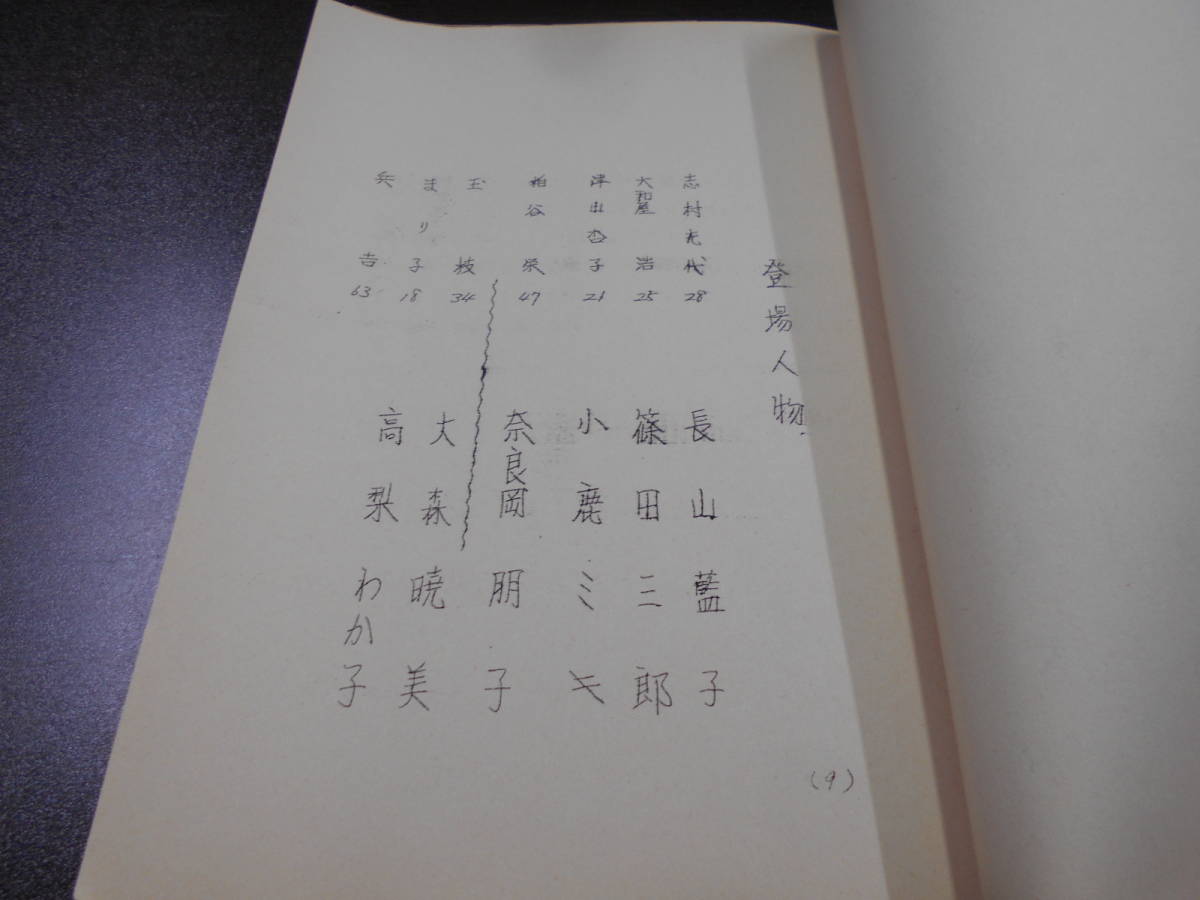 登場人物
志村光代 28 長山藍子
大和屋浩 25 篠田三郎
津山杏子 21 小鹿ミキ
柏谷栄 47 奈良岡朋子
玉枝 34
まり子 18 大森暁美
兵吉 63 高梨わか子
(9)